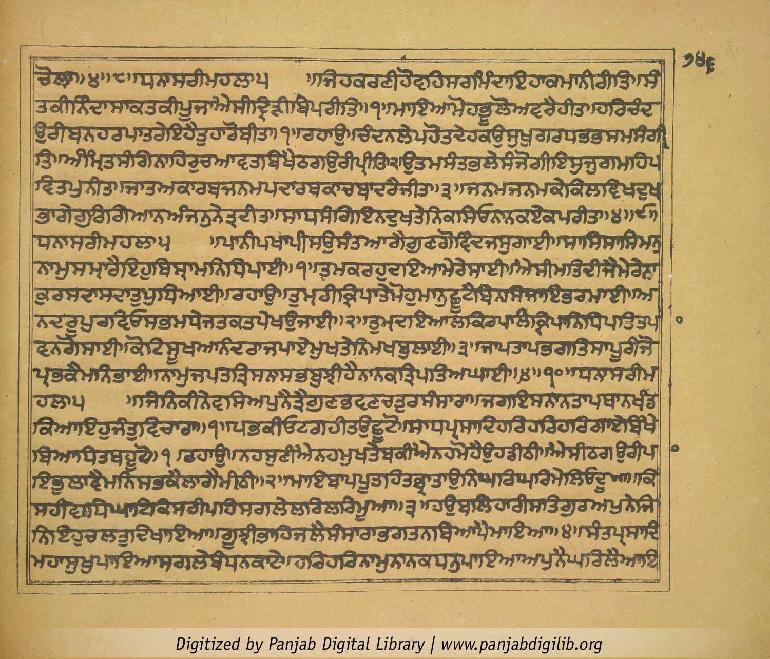 ੭੪੬
ਚੋਲਾ॥੪॥੮॥ਧਨਾਸਰੀਮਹਲਾ੫ ॥ਜਿਹਕਰਣੀਹੋਵਹਿਸਰਮਿੰਦਾਇਹਾਕਮਾਨੀਰੀਤਿ॥ਸੰ
ਤਕੀਨਿੰਦਾਸਾਕਤਕੀਪੂਜਾਐਸੀਦ੍ਰਿੜੀਬਿਪਰੀਤਿ॥੧॥ਮਾਇਆਮੋਹਭੂਲੋਅਵਰੈਹੀਤ॥ਹਰਿਚੰਦ
ਉਰੀਬਨਹਰਪਾਤਰੇਇਹੈਤੁਹਾਰੋਬੀਤ॥੧॥ਰਹਾਉ॥ਚੰਦਨਲੇਪਹੋਤਦੇਹਕਉਸੁਖੁਗਰਧਭਭਸਮਸੰਗੀ
ਤਿ॥ਅੰਮ੍ਰਿਤਸੰਗਿਨਾਹਿਰੁਚਆਵਤਬਿਖੈਠਗਉਰੀਪ੍ਰੀਤਿ॥੨॥ਉਤਮਸੰਤਭਲੇਸੰਜੋਗੀਇਸੁਜੁਗਮਹਿਪ
ਵਿਤਪੁਨੀਤ॥ਜਾਤਅਕਾਰਥਜਨਮਪਦਾਰਥਕਾਚਬਾਦਰੈਜੀਤ॥੩॥ਜਨਮਜਨਮਕੇਕਿਲਵਿਖਦੁਖ
ਭਾਗੇਗੁਰਿਗਿਆਨਅੰਜਨੁਨੇਤ੍ਰਦੀਤ॥ਸਾਧਸੰਗਿਇਨਦੁਖਤੇਨਿਕਸਿਓਨਾਨਕਏਕਪਰੀਤ॥੪॥੯॥
ਧਨਾਸਰੀਮਹਲਾ੫ ॥ਪਾਨੀਪਖਾਪੀਸਉਸੰਤਆਗੈਗੁਣਗੋਵਿੰਦਜਸੁਗਾਈ॥ਸਾਸਿਸਾਸਿਮਨੁ
ਨਾਮੁਸਮਾਰੈਇਹੁਬਿਸ੍ਰਾਮਨਿਧਿਪਾਈ॥੧॥ਤੁਮਕਰਹੁਦਇਆਮੇਰੇਸਾਈ॥ਐਸੀਮਤਿਦੀਜੈਮੇਰੇਠਾ
ਕੁਰਸਦਾਸਦਾਤੁਧੁਧਿਆਈ॥ਰਹਾਉ॥ਤੁਮ੍ਰੀਕ੍ਰਿਪਾਤੇਮੋਹੁਮਾਨੁਛੂਟੈਬਿਨਸਿਜਾਇਭਰਮਾਈ॥ਅ
ਨਦਰੂਪੁਰਵਿਓਸਭਮਧੇਜਤਕਤਪੇਖਉਜਾਈ॥੨॥ਤੁਮਦਇਆਲਕਿਰਪਾਲਕ੍ਰਿਪਾਨਿਧਿਪਤਿਤਪਾ
ਵਨਗੋਸਾਈ॥ਕੋਟਿਸੂਖਆਨੰਦਰਾਜਪਾਏਮੁਖਤੇਨਿਮਖਬੁਲਾਈ॥੩॥ਜਾਪਤਾਪਭਗਤਿਸਾਪੂਰੀਜੋ
ਪ੍ਰਭਕੈਮਨਿਭਾਈ॥ਨਾਮੁਜਪਤਤ੍ਰਿਸਨਾਸਭਬੁਝੀਹੈਨਾਨਕਤ੍ਰਿਪਤਿਅਘਾਈ॥੪॥੧੦॥ਧਨਾਸਰੀਮ
ਹਲਾ੫ ॥ਜਿਨਿਕੀਨੇਵਸਿਅਪੁਨੈਤ੍ਰੈਗੁਣਭਵਣਚਤੁਰਸੰਸਾਰਾ॥ਜਗਇਸਨਾਨਤਾਪਥਾਨਖੰਡੇ
ਕਿਆਇਹੁਜੰਤੁਵਿਚਾਰਾ॥੧॥ਪ੍ਰਭਕੀਓਟਗਹੀਤਉਛੂਟੋ॥ਸਾਧਪ੍ਰਸਾਦਿਹਰਿਹਰਿਹਰਿਗਾਏਬਿਖੈ
ਬਿਆਧਿਤਬਹੂਟੋ॥੧॥ਰਹਾਉ॥ਨਹਸੁਣੀਐਨਹਮੁਖਤੇਬਕੀਐਨਹਮੋਹੈਉਹਡੀਠੀ॥ਐਸੀਠਗਉਰੀਪਾ
ਇਭੁਲਾਵੈਮਨਿਸਭਕੈਲਾਗੈਮੀਠੀ॥੨॥ਮਾਇਬਾਪਪੂਤਹਿਤਭ੍ਰਾਤਾਉਨਿਘਰਿਘਰਿਮੇਲਿਓਦੂਆ॥ਕਿ
ਸਹੀਵਾਧਿਘਾਟਿਕਿਸਹੀਪਹਿਸਗਲੇਲਰਿਲਰਿਮੂਆ॥੩॥ਹਉਬਲਿਹਾਰੀਸਤਿਗੁਰਅਪੁਨੇਜਿ
ਨਿਇਹੁਚਲਤੁਦਿਖਾਇਆ॥ਗੂਝੀਭਾਹਿਜਲੈਸੰਸਾਰਾਭਗਤਨਬਿਆਪੈਮਾਇਆ॥੪॥ਸੰਤਪ੍ਰਸਾਦਿ
ਮਹਾਸੁਖੁਪਾਇਆਸਗਲੇਬੰਧਨਕਾਟੇ॥ਹਰਿਹਰਿਨਾਮੁਨਾਨਕਧਨੁਪਾਇਆਅਪੁਨੈਘਰਿਲੈਆਇ
Digitized by Panjab Digital Library | www.panjabdigilib.org